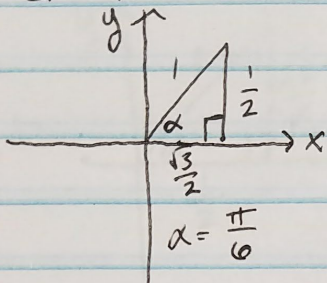 y
1
1/2
α
x
√3/2
α = π/6